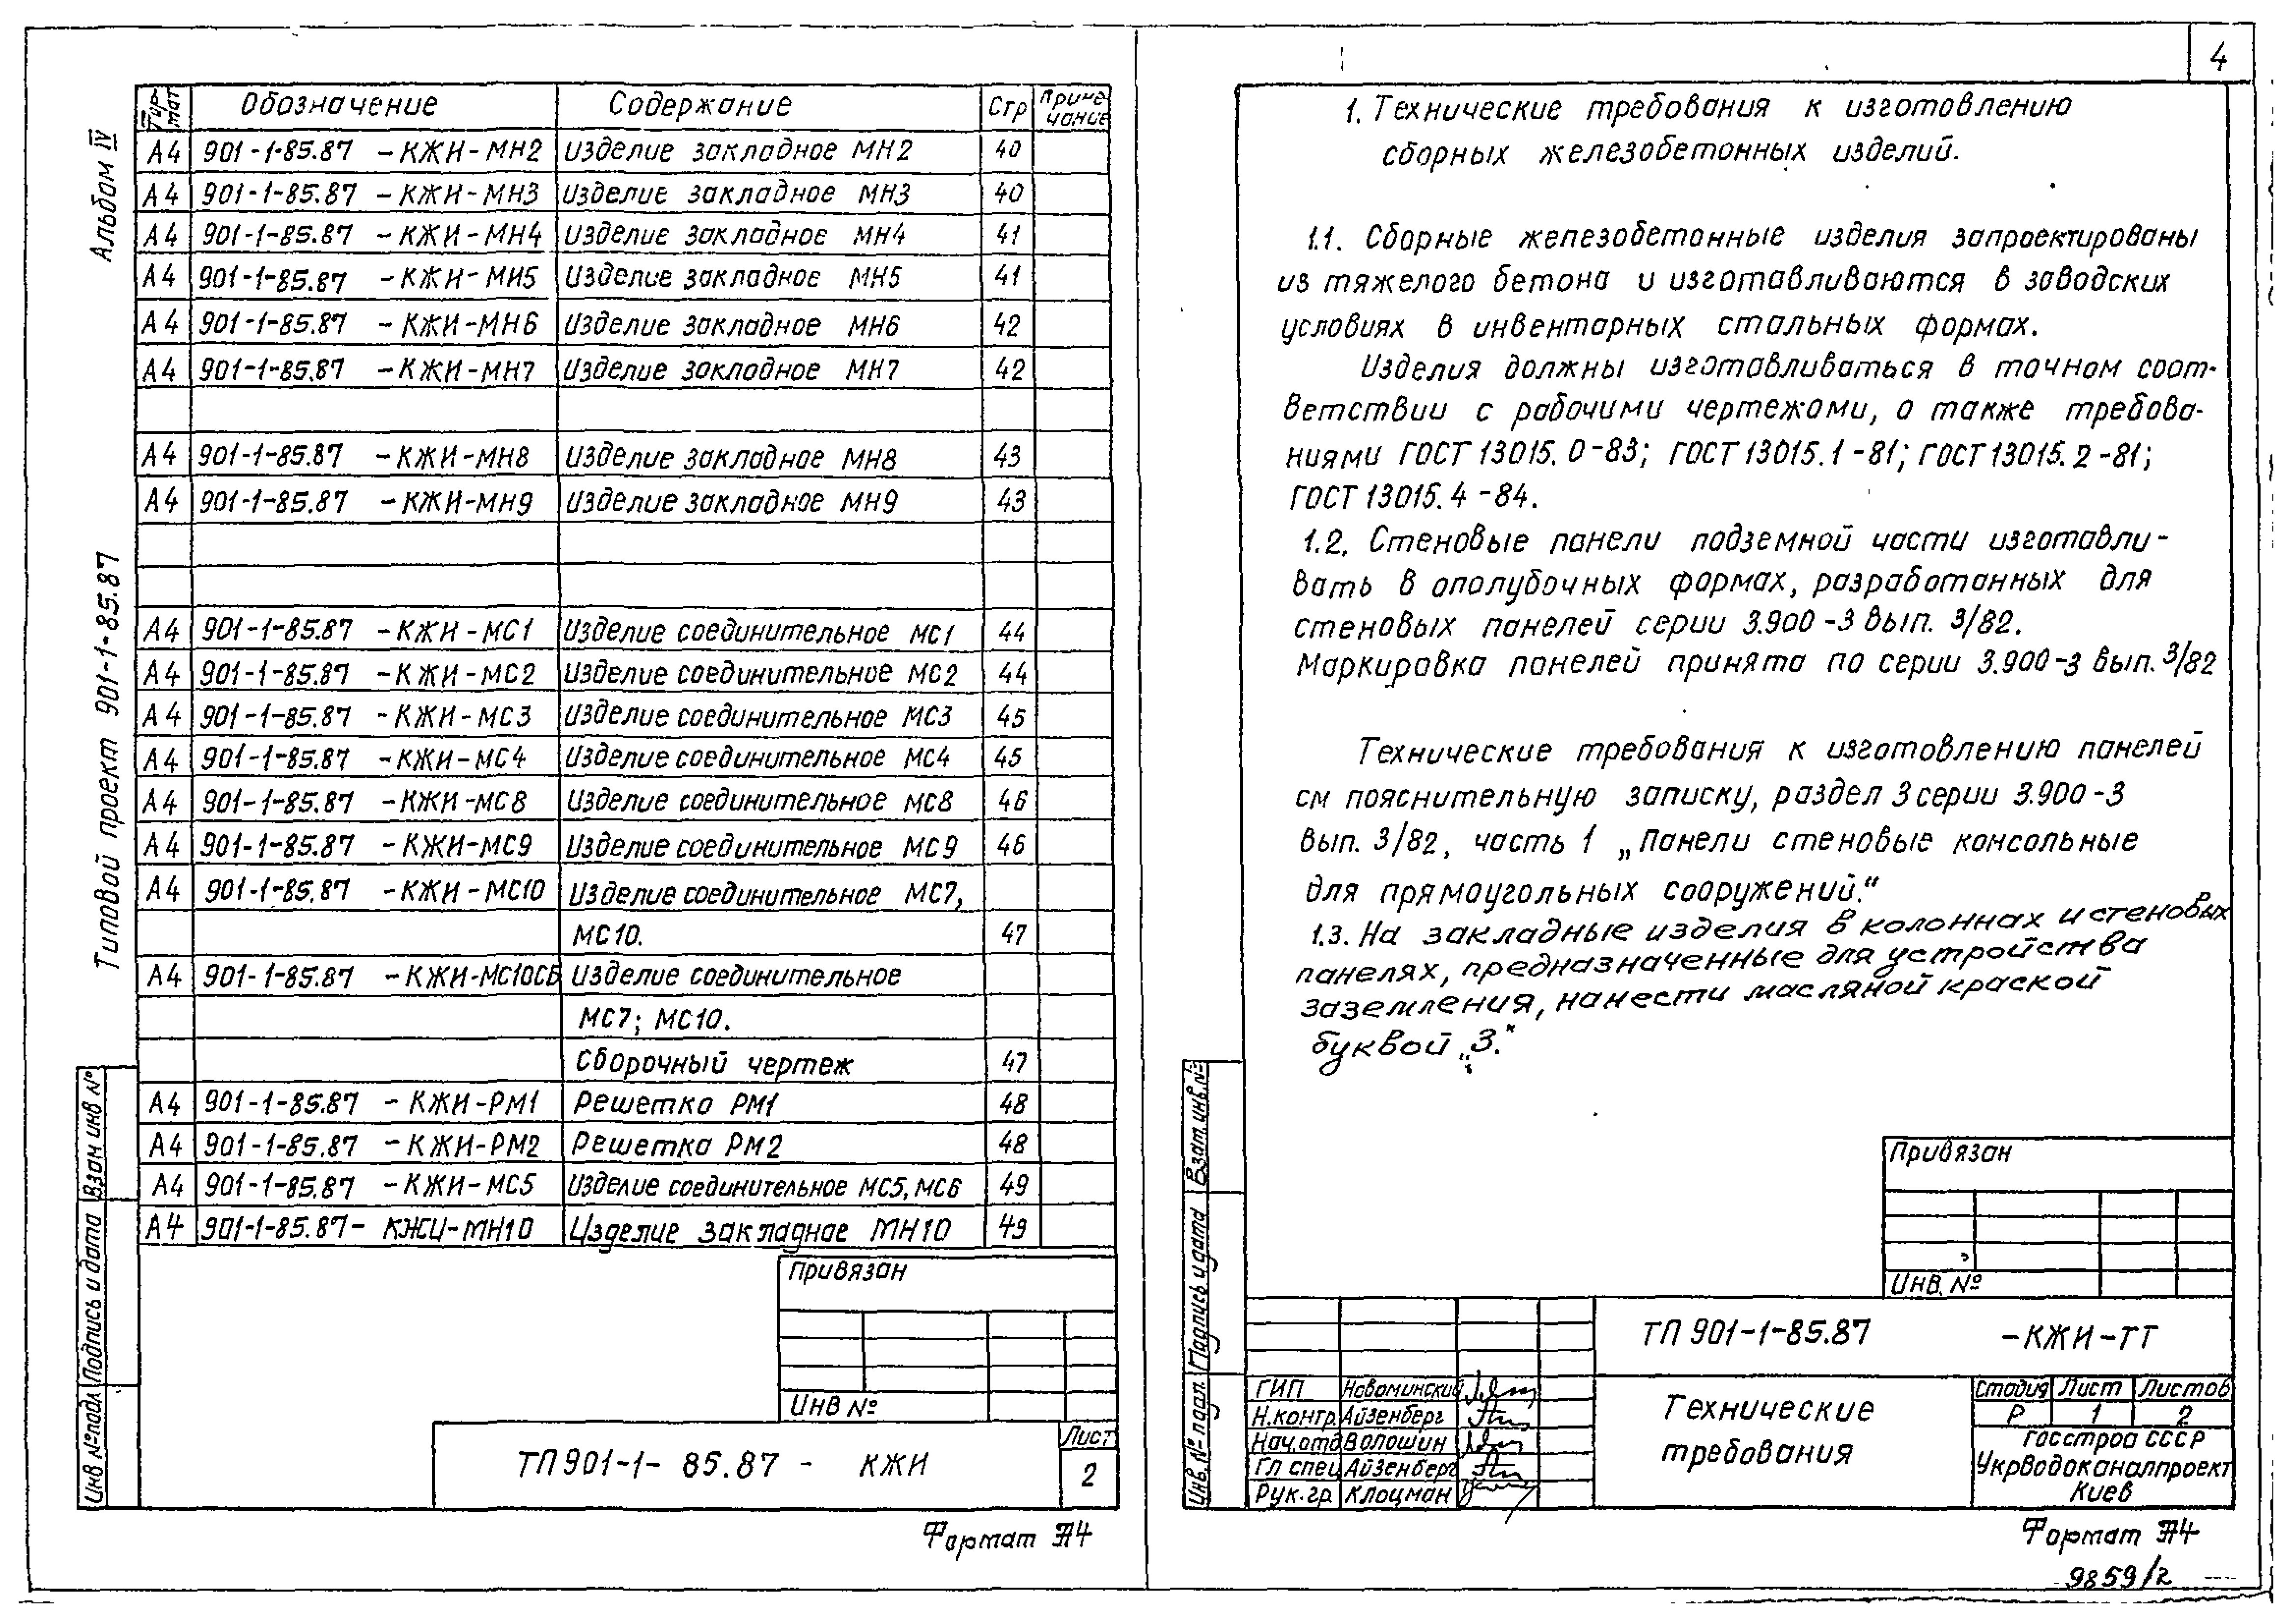 4
Альбом IV
Типовой проект 901-1-85.87
Обозначение Содержание Стр Приме-
чание
А4 901-1-85.87 -КЖИ-МН2 Изделие закладное МН2 40
А4 901-1-85.87 -КЖИ-МН3 Изделие закладное МН3 40
А4 901-1-85.87 -КЖИ-МН4 Изделие закладное МН4 41
А4 901-1-85.87 -КЖИ-МИ5 Изделие закладное МН5 41
А4 901-1-85.87 -КЖИ-МН6 Изделие закладное МН6 42
А4 901-1-85.87 -КЖИ-МН7 Изделие закладное МН7 42
А4 901-1-85.87 -КЖИ-МН8 Изделие закладное МН8 43
А4 901-1-85.87 -КЖИ-МН9 Изделие закладное МН9 43
А4 901-1-85.87 -КЖИ-МС1 Изделие соединительное МС1 44
А4 901-1-85.87 -КЖИ-МС2 Изделие соединительное МС2 44
А4 901-1-85.87 -КЖИ-МС3 Изделие соединительное МС3 45
А4 901-1-85.87 -КЖИ-МС4 Изделие соединительное МС4 45
А4 901-1-85.87 -КЖИ-МС8 Изделие соединительное МС8 46
А4 901-1-85.87 -КЖИ-МС9 Изделие соединительное МС9 46
А4 901-1-85.87 -КЖИ-МС10 Изделие соединительное МС7,
МС10. 47
А4 901-1-85.87 -КЖИ-МС10СБ Изделие соединительное
МС7; МС10.
Сборочный чертеж 47
А4 901-1-85.87 -КЖИ-РМ1 Решетка РМ1 48
А4 901-1-85.87 -КЖИ-РМ2 Решетка РМ2 48
А4 901-1-85.87 -КЖИ-МС5 Изделие соединительное МС5, МС6 49
А4 901-1-85.87- КЖИ-МН10 Изделие закладное МН10 49
Взан инв №
Подпись и дата
Инв № подл
Привязан
Инв №
ТП 901-1-85.87 - КЖИ
Лист
2
Формат А4
1. Технические требования к изготовлению
сборных железобетонных изделий.
1.1. Сборные железобетонные изделия запроектированы
из тяжелого бетона и изготавливаются в заводских
условиях в инвентарных стальных формах.
Изделия должны изготавливаться в точном соот-
ветствии с рабочими чертежами, а также требова-
ниями ГОСТ 13015.0-83; ГОСТ 13015.1-81; ГОСТ 13015.2-81;
ГОСТ 13015.4-84.
1.2. Стеновые панели подземной части изготавли-
вать в опалубочных формах, разработанных для
стеновых панелей серии 3.900-3 вып. 3/82.
Маркировка панелей принята по серии 3.900-3 вып. 3/82
Технические требования к изготовлению панелей
см пояснительную записку, раздел 3 серии 3.900-3
вып. 3/82, часть 1 „Панели стеновые консольные
для прямоугольных сооружений."
1.3. На закладные изделия в колоннах и стеновых
панелях, предназначенные для устройства
заземления, нанести масляной краской
буквой „З."
Взат. инв. №
Подпись и дата
Инв. № подл.
Привязан
Инв. №
ТП 901-1-85.87 -КЖИ-ТТ
ГИП Новоминский
Н.контр. Айзенберг
Нач.отд Волошин
Гл спец Айзенберг
Рук.гр. Клоцман
Технические
требования
Стадия Лист Листов
Р 1 2
Госстрой СССР
Укрводоканалпроект
Киев
Формат А4
9859/2